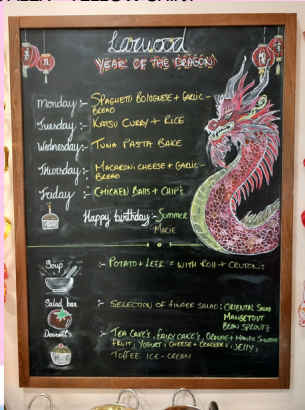 Larwood
YEAR OF THE DRAGON
Monday :- SPAGHETTI BOLOGNESE + GARLIC -
BREAD
Tuesday :- KATSU CURRY + RICE
Wednesday :- TUNA PASTA BAKE
Thursday :- MACARONI CHEESE + GARLIC -
BREAD
Friday :- CHICKEN BALLS + CHIP'S
Happy birthday :- Summer
Macie
Soup :- POTATO + LEEK = WITH ROLL + CRUTONS
Salad bar :- SELECTION OF FINGER SALAD : ORIENTAL SALAD
MANGETOUT
BEAN SPROUT'S
Desserts :- TEA CAKE'S, FAIRY CAKE'S, ORANGE + MANGO SMOOTHIE
FRUIT, YOGURT, CHEESE + CRACKERS, JELLY,
TOFFEE ICE-CREAM